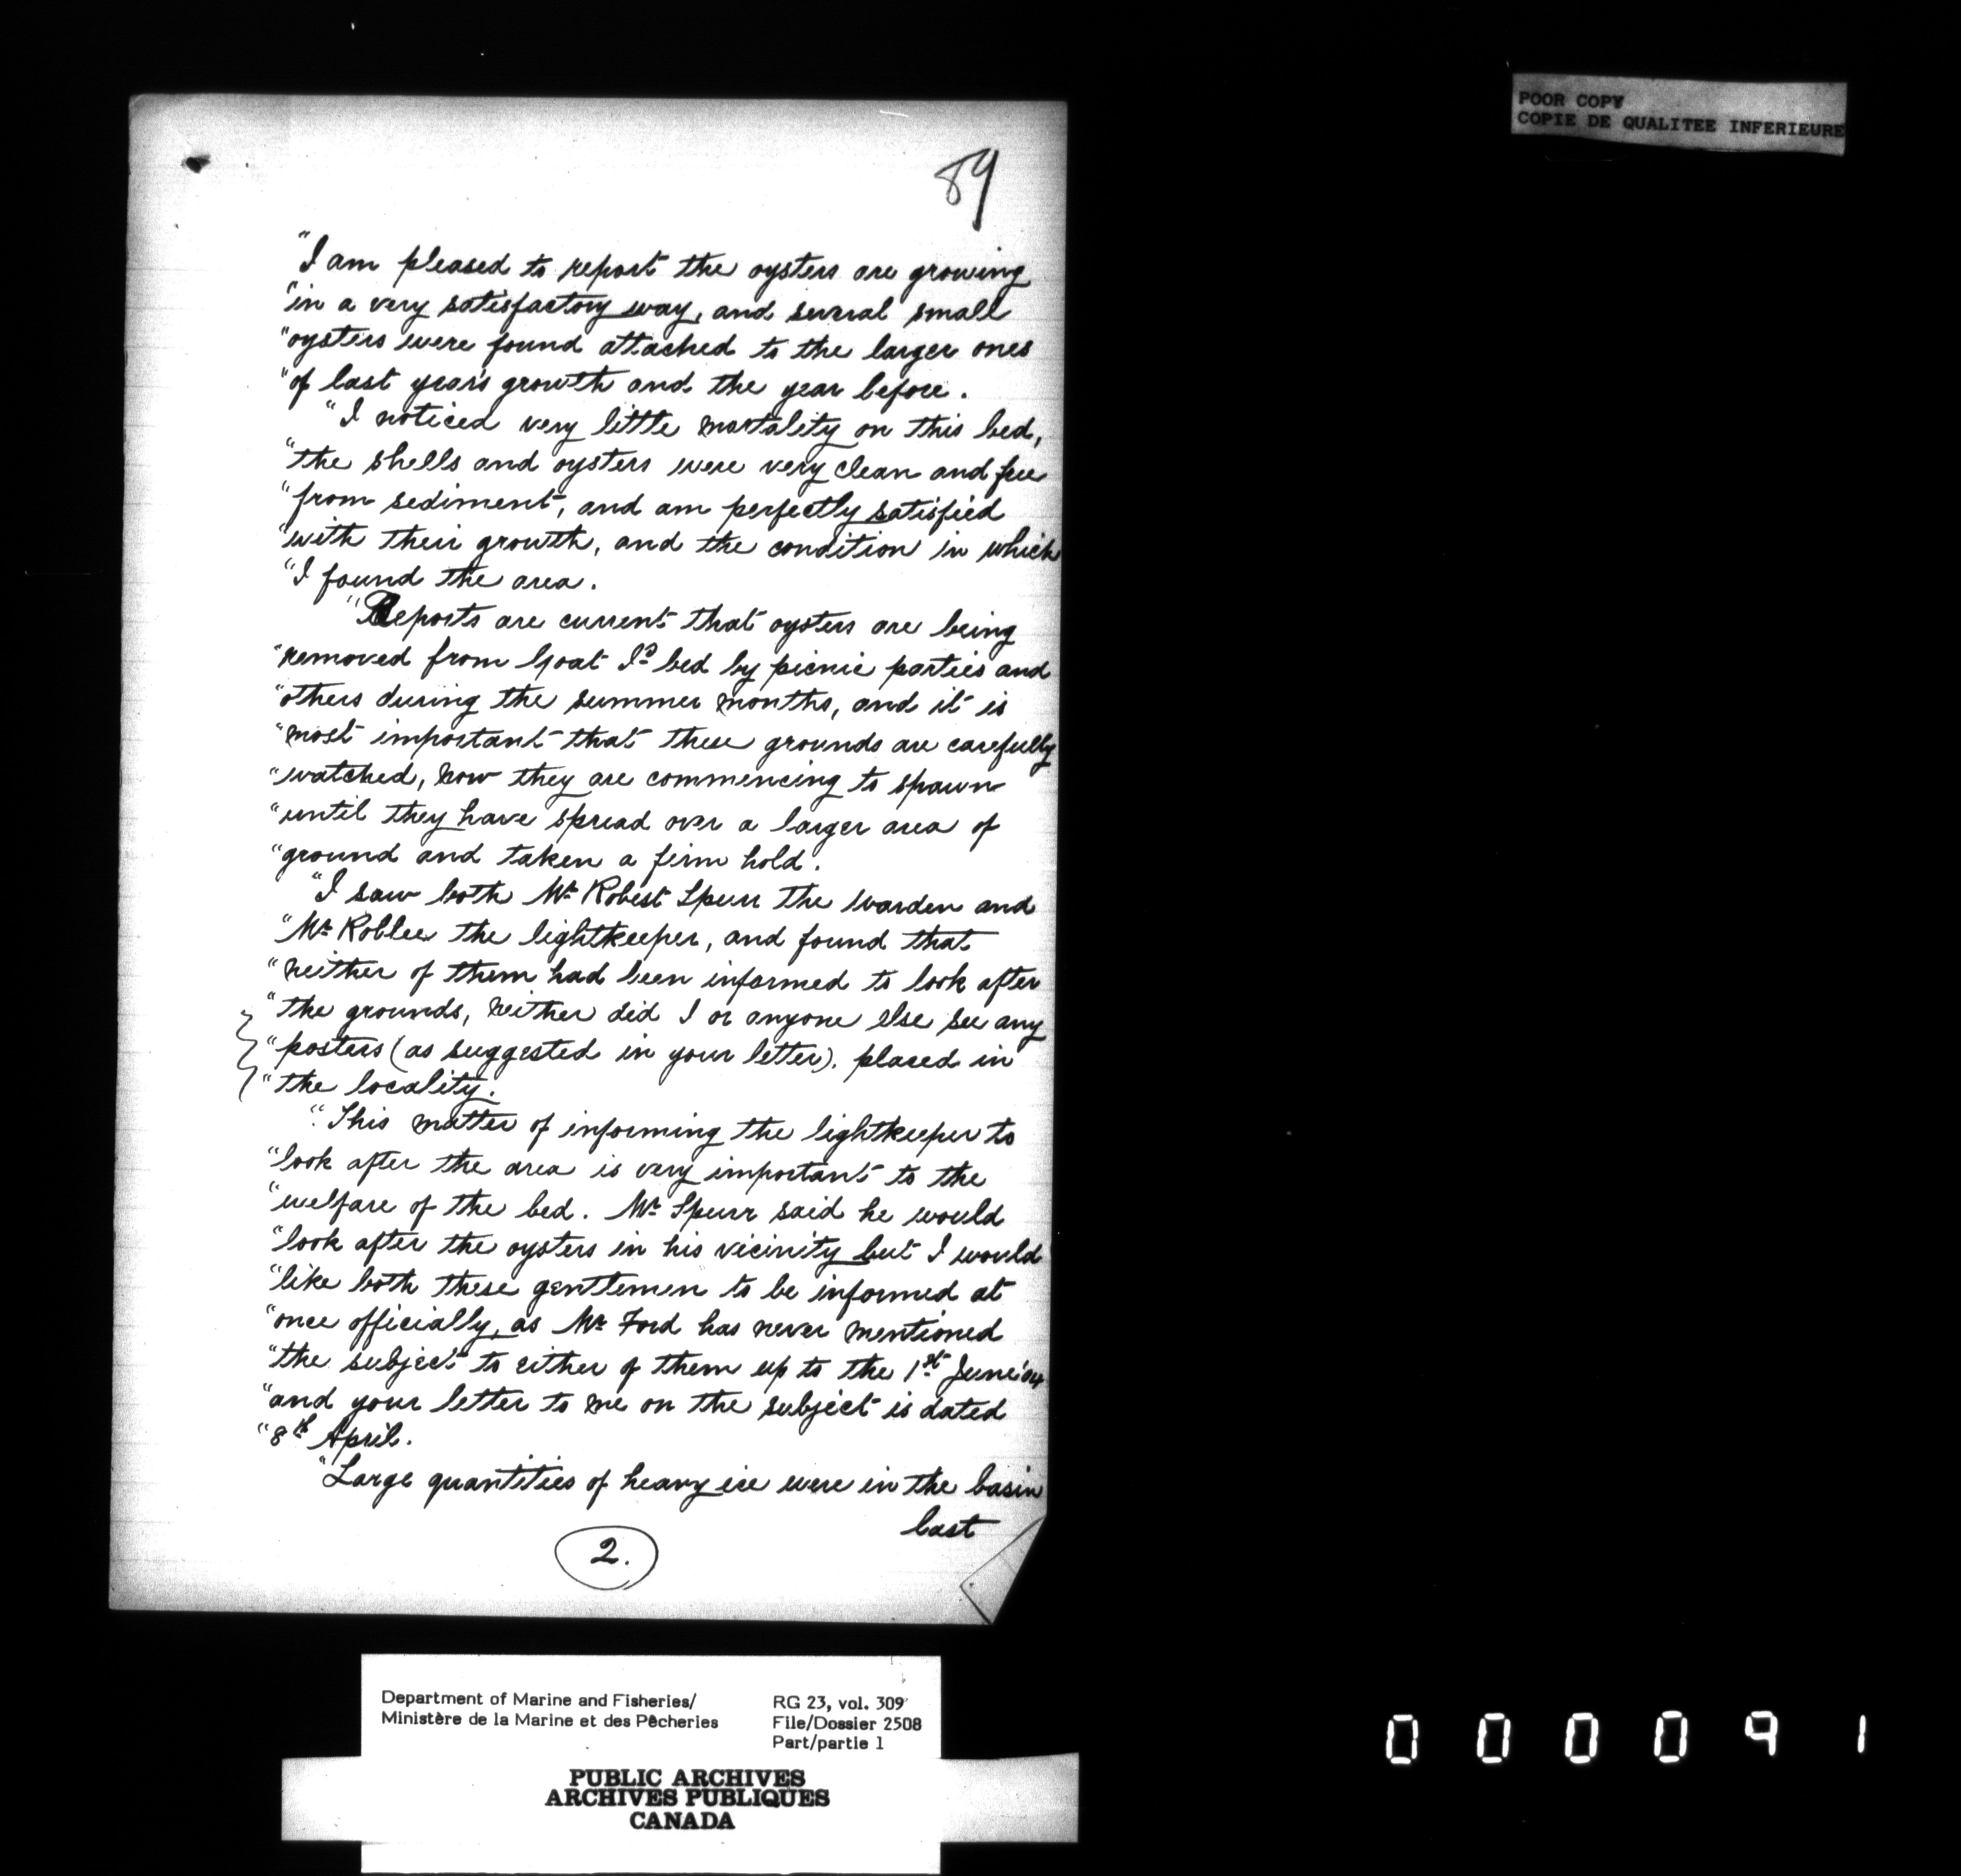 POOR COPY
COPIE DE QUALITEE INFERIEURE
89
"I am pleased to report the oysters are growing
"in a very satisfactory way, and several small
"oysters were found attached to the larger ones
"of last year's growth and the year before.
"I noticed very little mortality on this bed,
"the shells and oysters were very clean and free
"from sediment, and am perfectly satisfied
"with their growth, and the condition in which
"I found the area.
"Reports are current that oysters are being
"removed from Goat Id bed by picnic parties and
"others during the summer months, and it is
"most important that these grounds are carefully
"watched, now they are commencing to spawn
"until they have spread over a larger area of
"ground and taken a firm hold.
"I saw both Mr Robert Spurr the warden and
"Mr Roblee the lightkeeper, and found that
"neither of them had been informed to look after
"the grounds, neither did I or anyone else see any
"posters (as suggested in your letter). placed in
"the locality.
"This matter of informing the lightkeeper to
"look after the area is very important to the
"welfare of the bed. Mr Spurr said he would
"look after the oysters in his vicinity but I would
"like both these gentlemen to be informed at
"once officially, as Mr Ford has never mentioned
"the subject to either of them up to the 1st June '04
"and your letter to me on the subject is dated
"8th April.
"Large quantities of heavy ice were in the basin
last
2.
Department of Marine and Fisheries/
Ministère de la Marine et des Pêcheries
RG 23, vol. 309
File/Dossier 2508
Part/partie 1
PUBLIC ARCHIVES
ARCHIVES PUBLIQUES
CANADA
000091